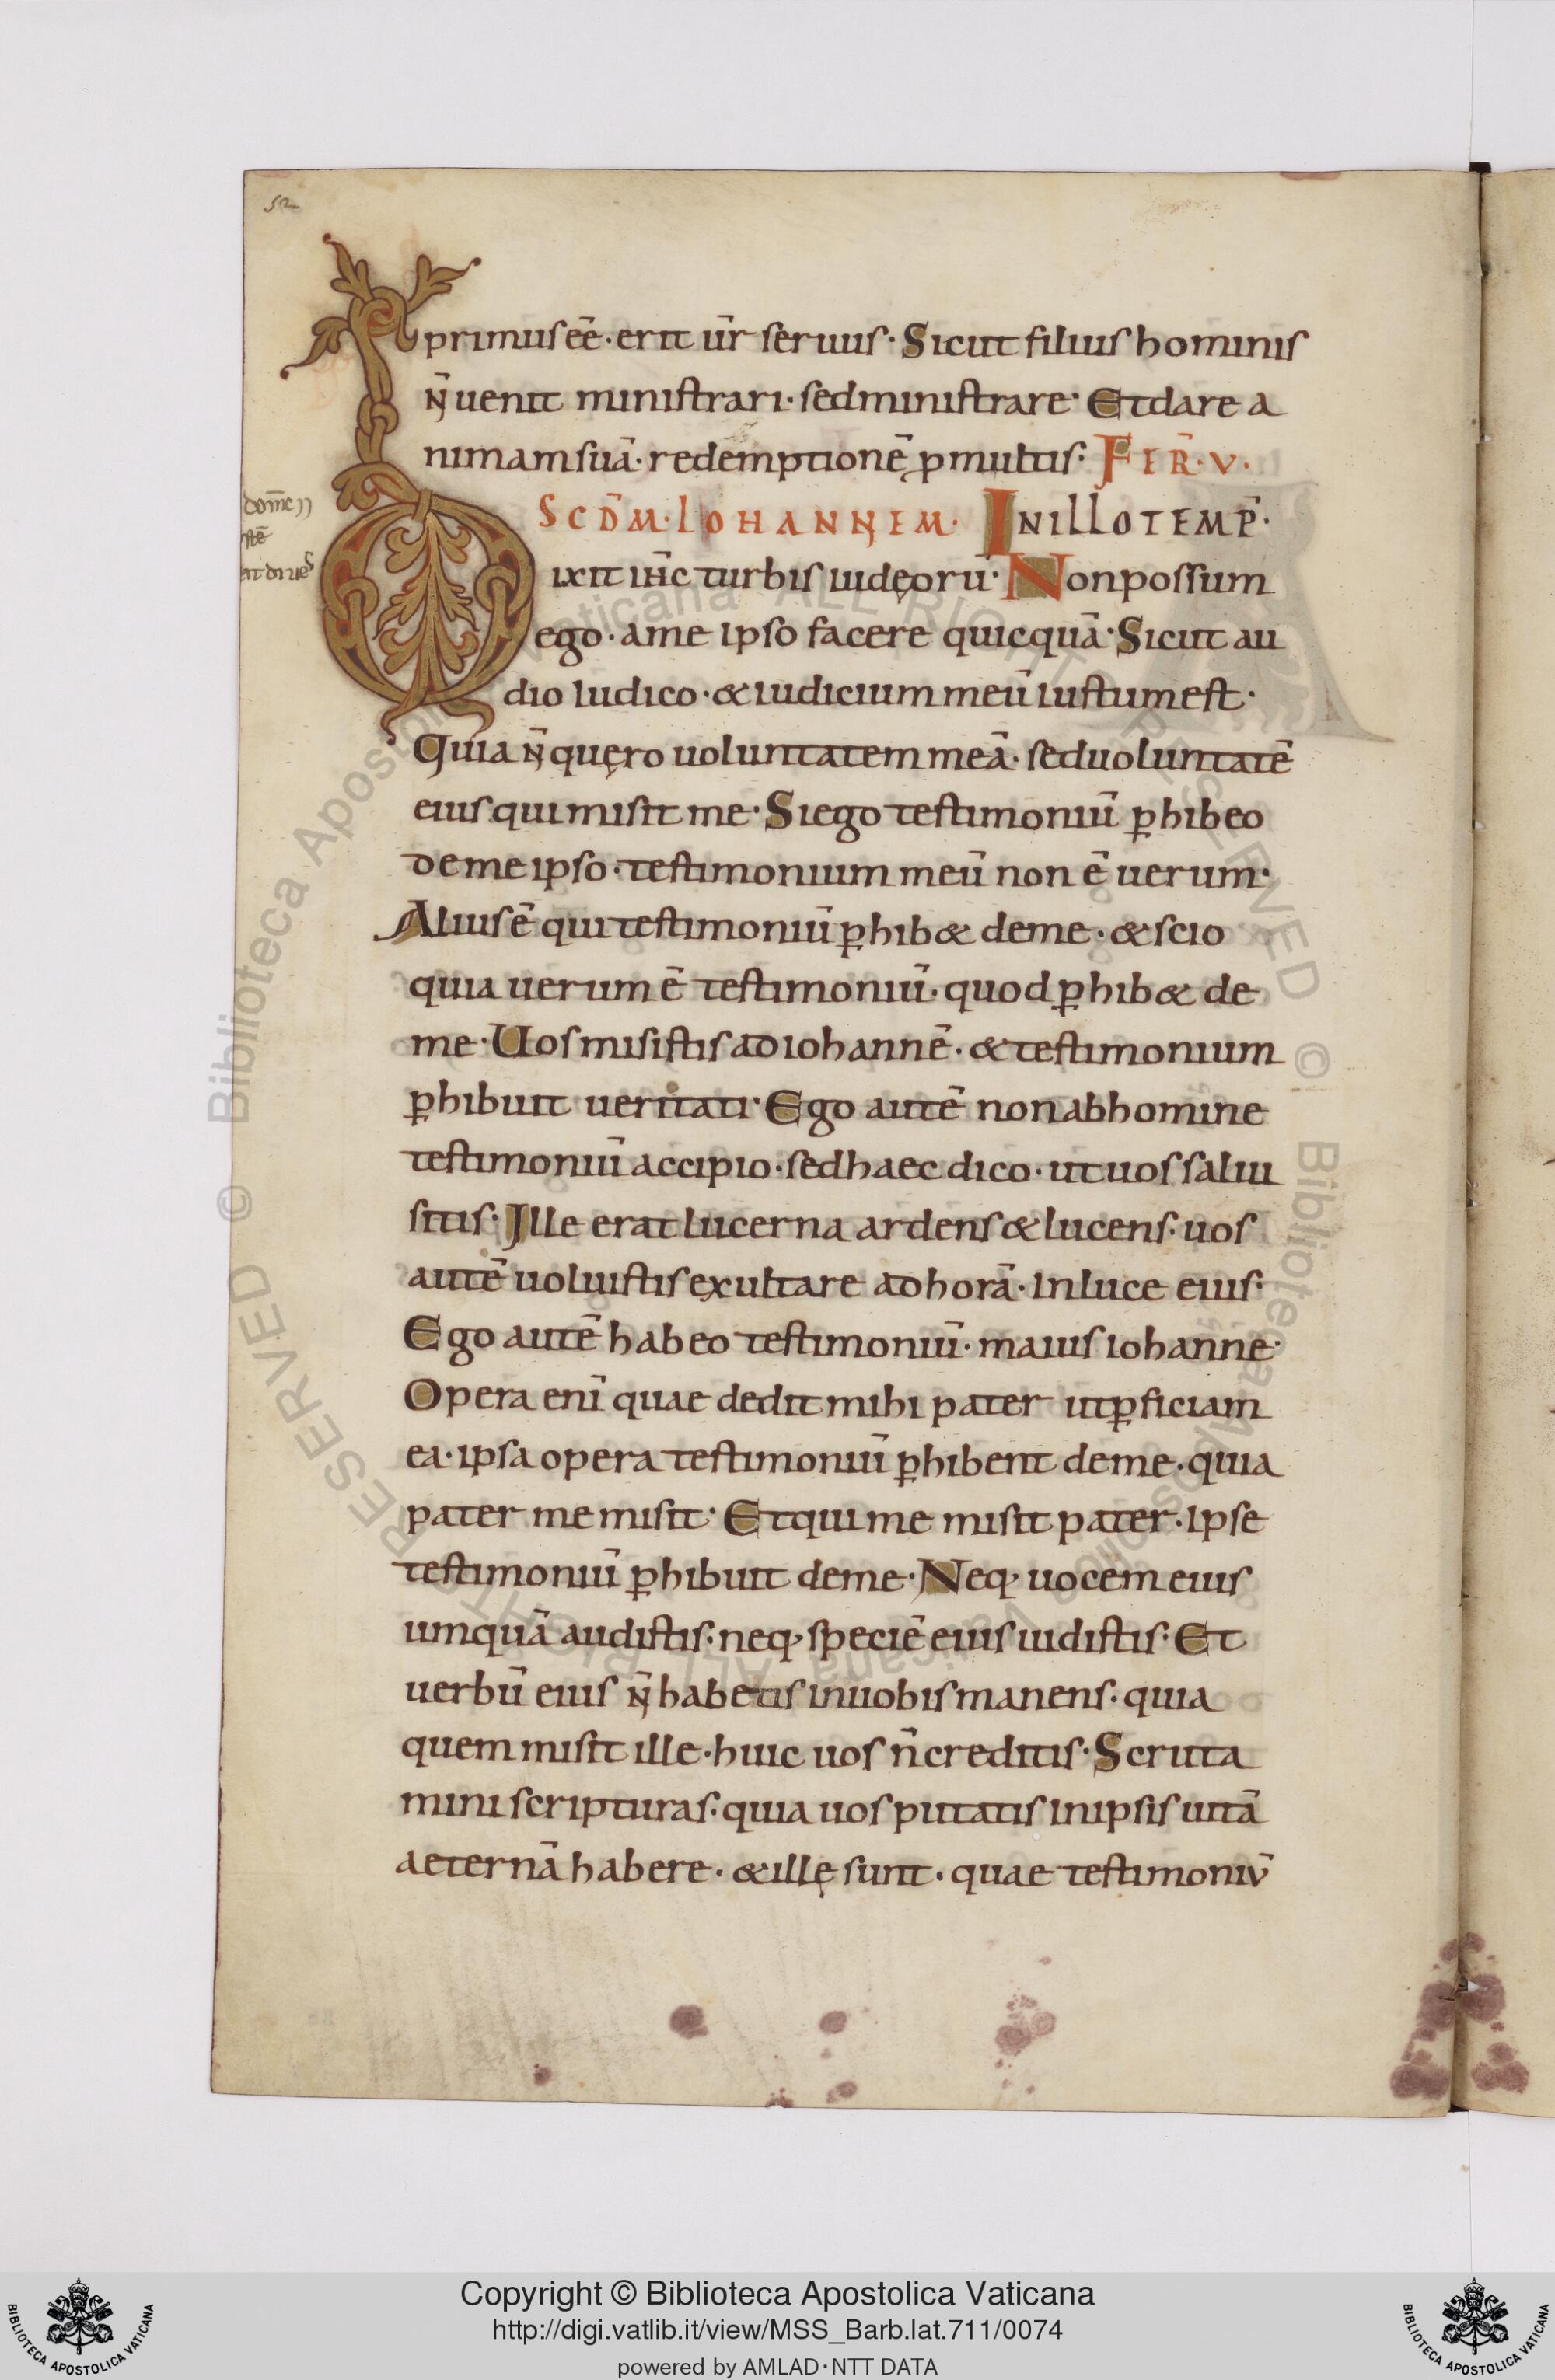 52
primus eē · erit ur̄ seruus · Sicut filius hominis
n̄ uenit ministrari · sed ministrare · Et dare a
nimam suā · redemptionē p multis · FER̄ · V ·
SCD̄M · IOHANNEM · IN ILLO TEMP̄ ·
Dixit ih̄c turbis iudęorū · Non possum
ego · a me ipso facere quicquā · Sicut au
dio iudico · & iudicium meū iustum est ·
Quia n̄ quęro uoluntatem meā · sed uoluntatē
eius qui misit me · Si ego testimoniū ꝑhibeo
de me ipso · testimonium meū non ē uerum ·
Alius ē qui testimoniū ꝑhib& de me · & scio
quia uerum ē testimoniū · quod ꝑhib& de
me · Uos misistis ad iohannē · & testimonium
ꝑhibuit ueritati · Ego autē non ab homine
testimoniū accipio · sed haec dico · ut uos salui
sitis · Ille erat lucerna ardens & lucens · uos
autē uoluistis exultare ad horā · in luce eius ·
Ego autē habeo testimoniū · maius iohanne ·
Opera enī quae dedit mihi pater ut ꝑficiam
ea · ipsa opera testimoniū ꝑhibent de me · quia
pater me misit · Et qui me misit pater · ipse
testimoniū ꝑhibuit de me · Neq; uocem eius
umquā audistis · neq; speciē eius uidistis · Et
uerbū eius n̄ habetis in uobis manens · quia
quem misit ille · huic uos n̄ creditis · Scruta
mini scripturas · quia uos putatis in ipsis uitā
aeternā habere · & illę sunt · quae testimoniū
Copyright © Biblioteca Apostolica Vaticana
http://digi.vatlib.it/view/MSS_Barb.lat.711/0074
powered by AMLAD·NTT DATA
BIBLIOTECA APOSTOLICA VATICANA
BIBLIOTECA APOSTOLICA VATICANA